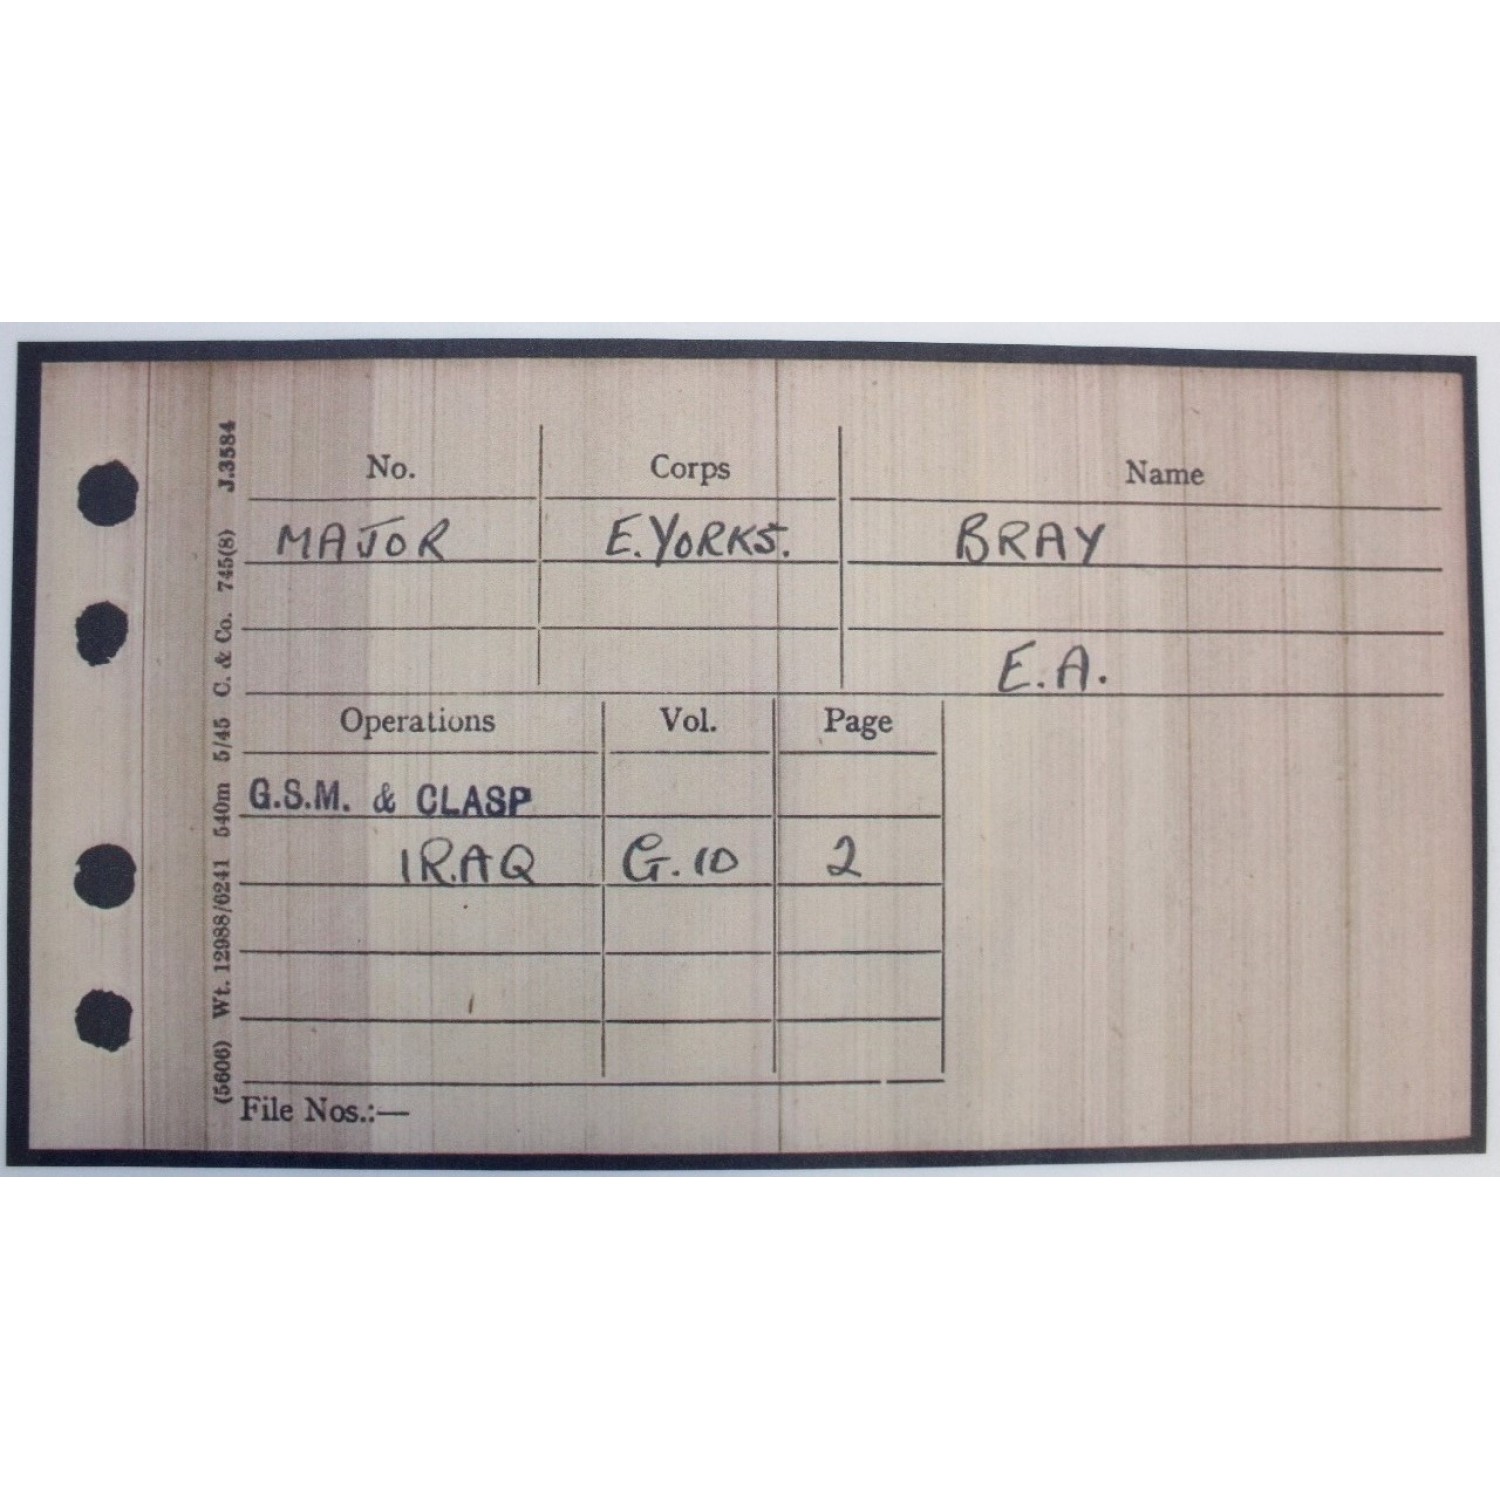 No. Corps Name
MAJOR E.YORKS. BRAY
E.A.
Operations Vol. Page
G.S.M. & CLASP
IRAQ G.10 2
File Nos.:—
(5606) Wt. 12988/6241 540m 5/45 C. & Co. 745(8) J.3584